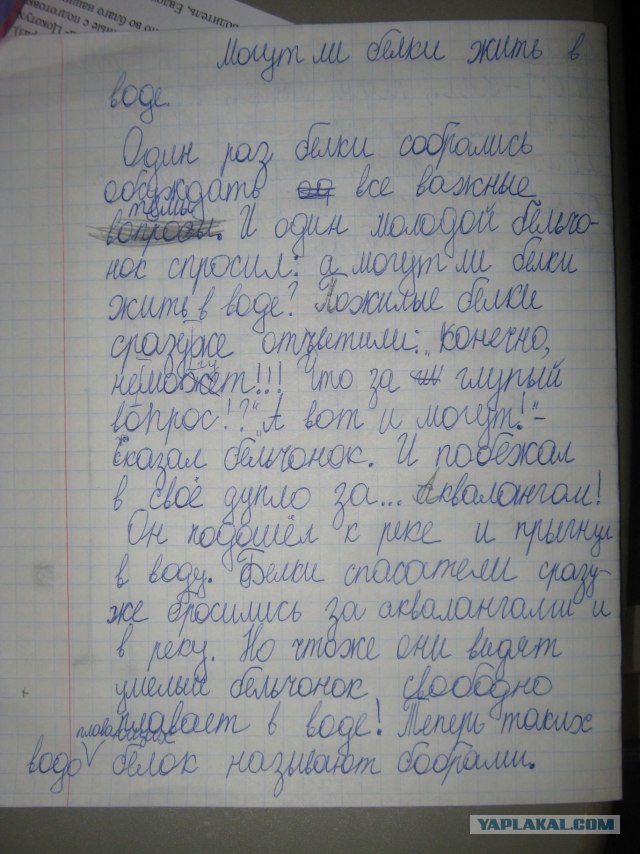 Могут ли белки жить в
воде.
Один раз, белки собрались
обсуждать все важные
темы
вопросы. И один молодой бельчо-
нок спросил: а могут ли белки
жить в воде? Пожилые белки
сразуже ответили: „Конечно,
неможет!!! Что за глупый
вопрос!?" „А вот и могут!"-
сказал бельчонок. И побежал
в своё дупло за... Аквалангом!
Он подошёл к реке и прыгнул
в воду. Белки спасатели сразу-
же бросились за аквалангами и
в реку. Но чтоже они видят
умелый бельчонок свободно
плавает в воде! Теперь таких
водоплавающих
белок называют бобрами.
YAPLAKAL.COM